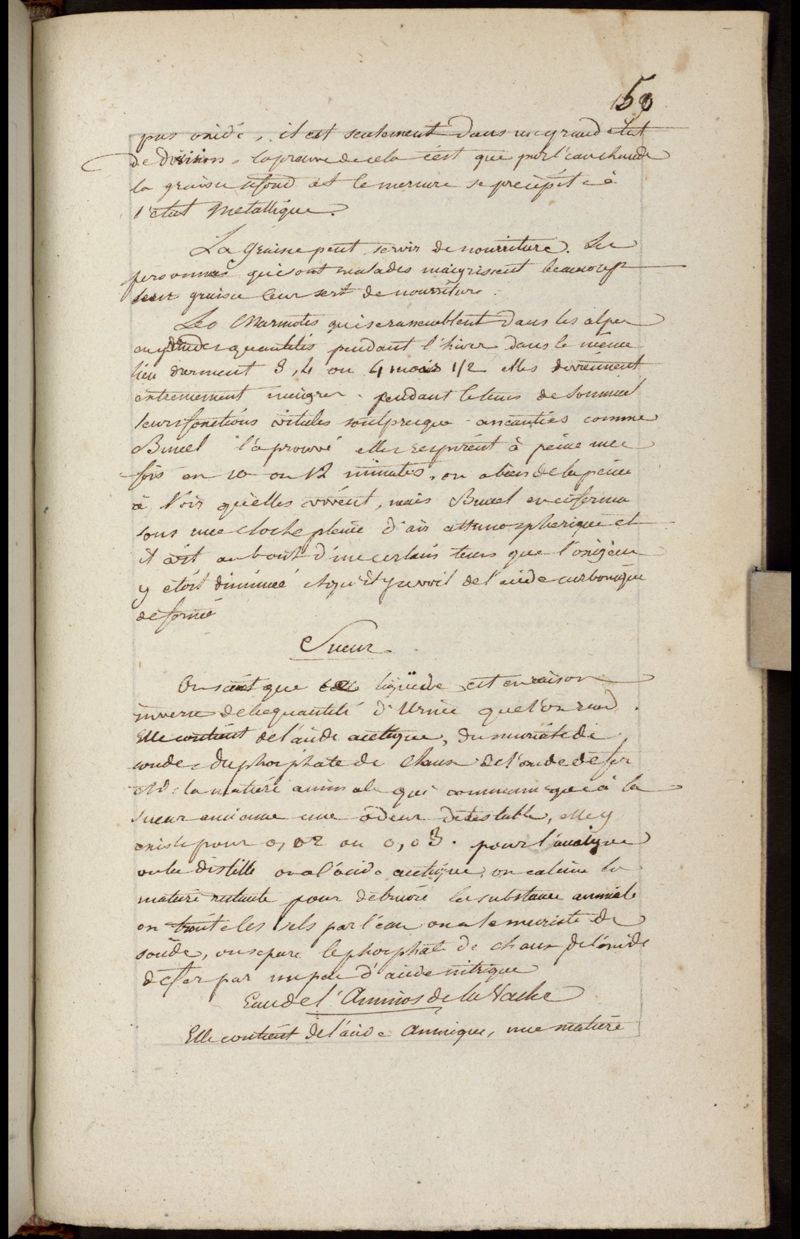 50
pas oxidé, il est seulement dans un grand état
de division, la preuve de cela c'est que par l'eau chaude
la graisse fond et le mercure se précipite à
l'état metallique.
La graisse peut servir de nourriture. Les
personnes qui sont malades maigrissent beaucoup
leur graisse leur sert de nourriture.
Les Marmotes qui se rassemblent dans les alpes
en grandes quantités pendant l'hiver dans le même
lieu dorment 3, 4 ou 4 mois 1/2 elles deviennent
extremement maigres. pendant le tems de sommeil
leurs fonctions vitales sont presque anéanties comme
Bunel l'a prouvé elles respirent à peine une
fois en 10 ou 12 minutes, on a bien de la peine
à Voir qu'elles vivent, mais Bunel en enferma
sous une cloche pleine d'air atmospherique et
il vit au bout d'un certain tems que l'oxigene
y étoit diminué et qu'il y avoit de l'acide carbonique
de formé
Sueur
On sait que ce liquide est en raison
inverse de la quantité d'Urine que l'on rend.
Elle contient de l'acide acetique, du muriate de
soude, du phosphate de Chaux de l'oxide de fer
et de la matiere animale qui communique à la
sueur ancienne une odeur detestable, elle y
existe pour 0,02 ou 0,03. pour l'analyse
on la distille on a l'acide acetique, on calcine la
matiere restante pour detruire la substance animale
on traite les sels par l'eau on a le muriate de
soude, on separe le phosphate de chaux de l'oxide
de fer par un peu d'acide nitrique
Eau de l'Amnios de la Vache
Elle contient de l'acide Amnique, une matiere